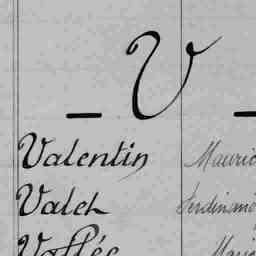 — V —
Valentin Mauric
Valet Ferdinand
Vallée Mari